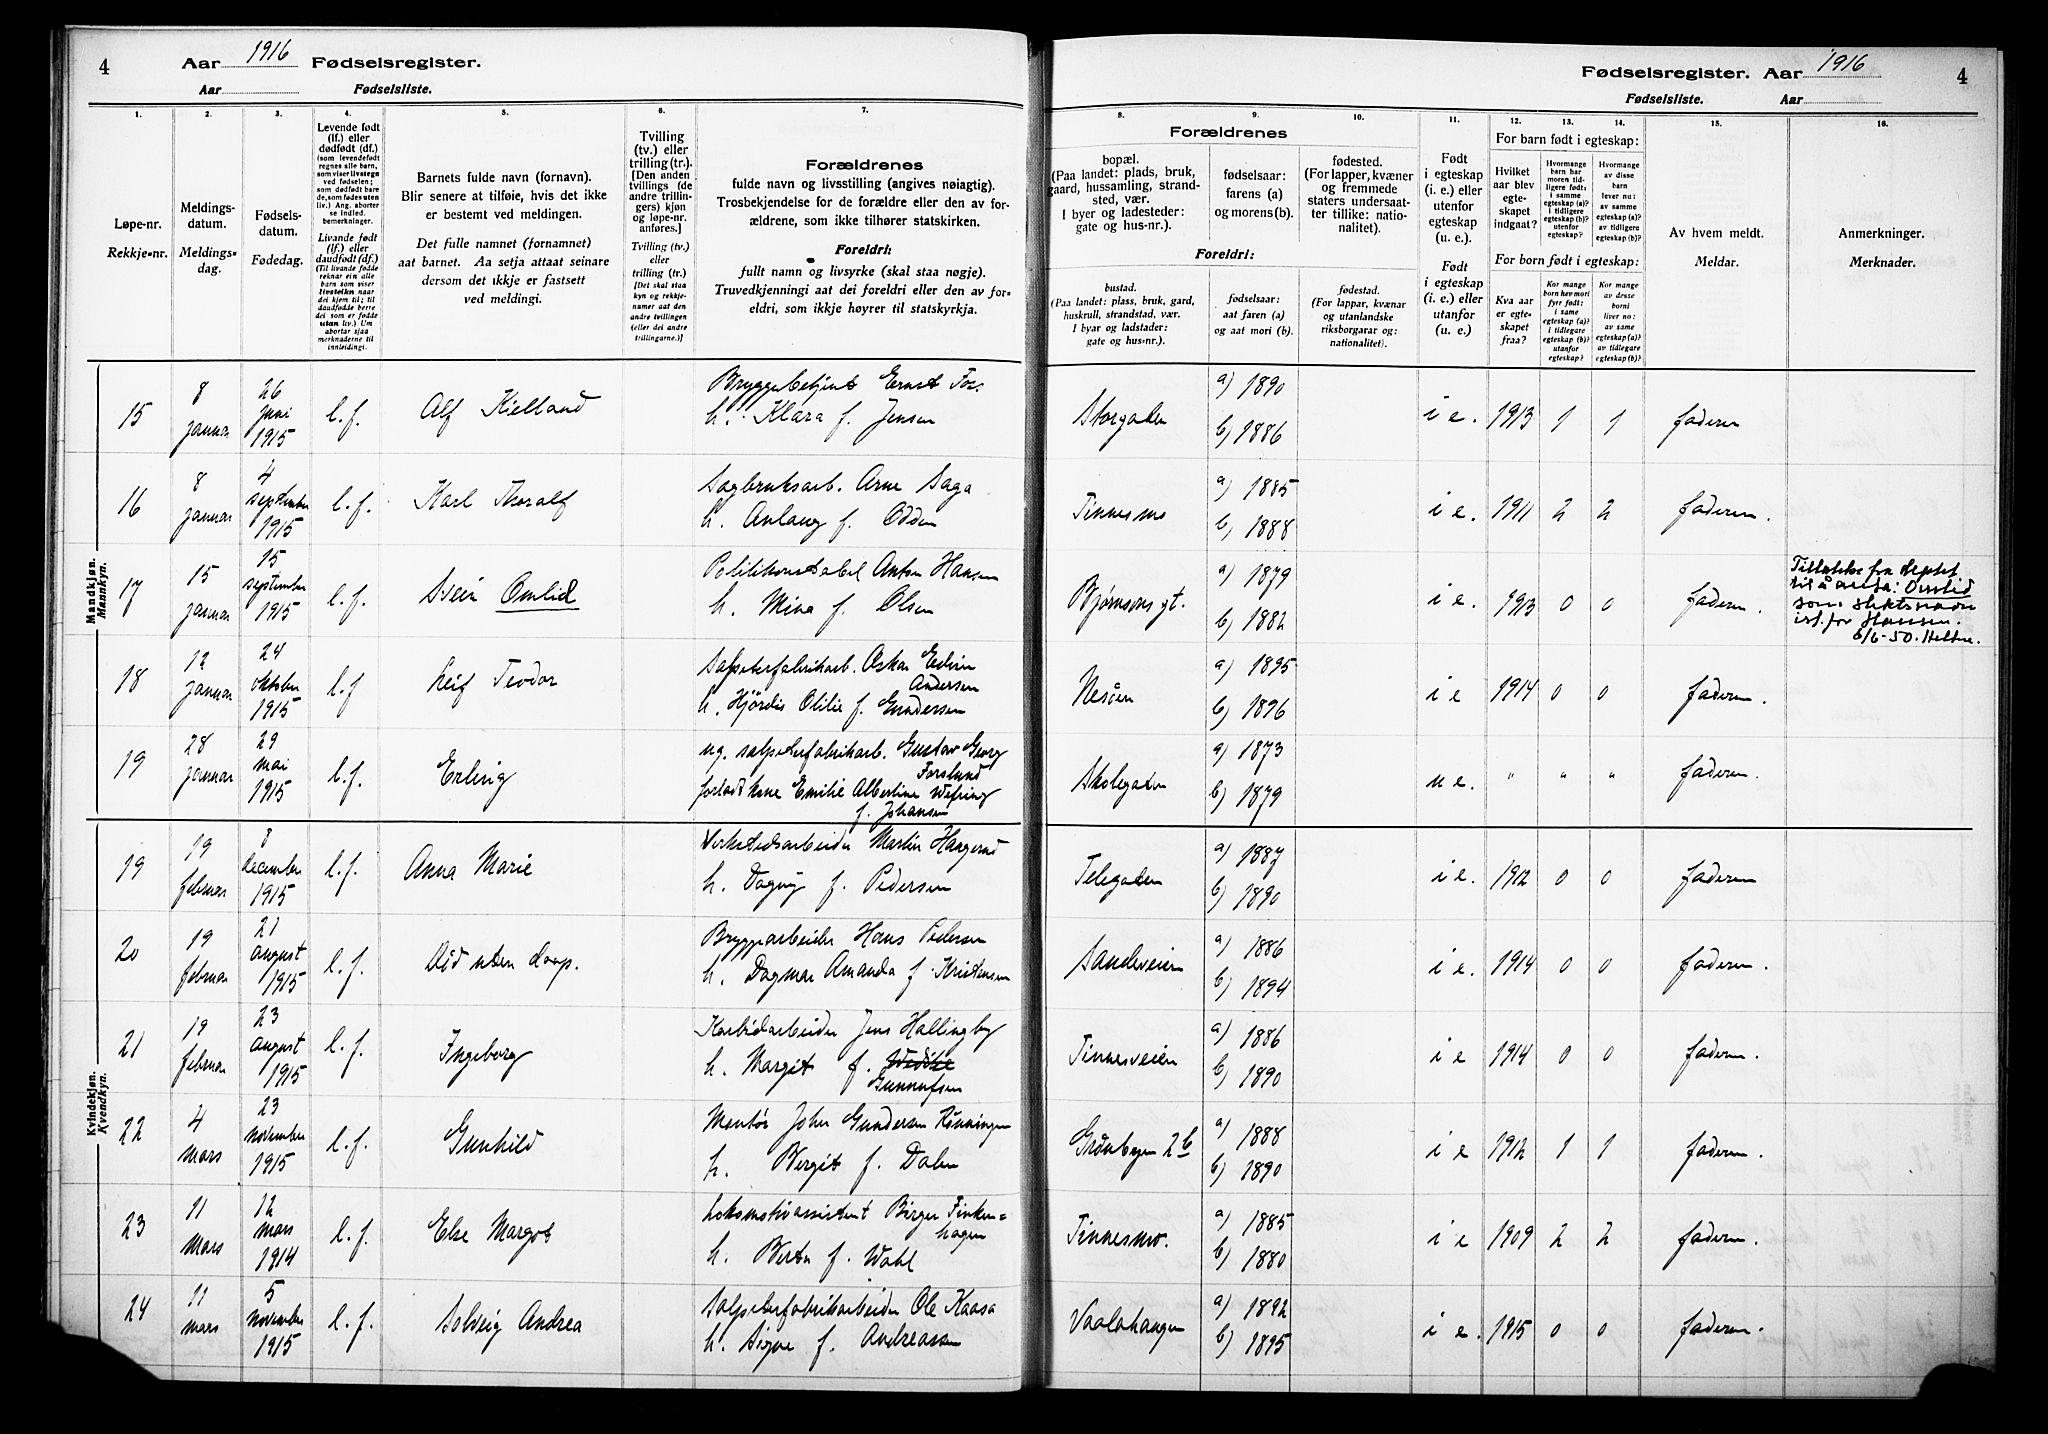 4
Aar 1916 Fødselsregister.
Aar Fødselsliste.
1. 2. 3. 4. 5. 6. 7.
Løpe-nr.
Rekkje-nr.
Meldings-
datum.
Meldings-
dag.
Fødsels-
datum.
Fødedag.
Levende født
(lf.) eller
dødfødt (df.)
(som levendefødt
regnes alle barn,
som viser livstegn
ved fødselen;
som dødfødt bare
de, som fødes uten
liv.) Ang. aborter
se indled.
bemerkninger.
Livande født
(lf.) eller
daudfødt (df.)
(Til livande fødde
reknar ein alle
barn som viser
livsteikn naar
dei kjem til; til
daudfødde berre
dei som er fødde
utan liv.) Um
abortar sjaa
merknaderne til
innleidingi.
Barnets fulde navn (fornavn).
Blir senere at tilføie, hvis det ikke
er bestemt ved meldingen.
Det fulle namnet (fornamnet)
aat barnet. Aa setja attaat seinare
dersom det ikkje er fastsett
ved meldingi.
Tvilling
(tv.) eller
trilling (tr.).
[Den anden
tvillings (de
andre trillin-
gers) kjøn
og løpe-nr.
anføres.]
Tvilling (tv.)
eller
trilling (tr.)
[Det skal staa
kyn og rekkje-
numer aat den
andre tvillingen
(eller dei andre
trillingarne.)]
Forældrenes
fulde navn og livsstilling (angives nøiagtig).
Trosbekjendelse for de forældre eller den av for-
ældrene, som ikke tilhører statskirken.
Foreldri:
fullt namn og livsyrke (skal staa nøgje).
Truvedkjenningi aat dei foreldri eller den av for-
eldri, som ikkje høyrer til statskyrkja.
Mandkjøn.
Mannkyn.
15 8 januar 26 juni 1915 l.f. Alf Kielland Bryggebetjent Ernst Fos.
h. Klara f. Jensen
16 8 januar 4 september 1915 l.f. Karl Thoralf Sagbruksarb. Arne Saga
h. Anlaug f. Odden
17 15 januar 15 september 1915 l.f. Svein Omlid Politikonstabel Anton Hansen
h. Mina f. Olsen
18 12 januar 24 oktober 1915 l.f Leif Teodor Salpeterfabrikarb. Oskar Edvin
Andersen
h. Hjördis Otilie f. Gundersen
19 28 januar 29 mai 1915 l.f. Erling ug. salpeterfabrikarb. Gustav Georg
Forslund
Emilie Albertine Wefring
f. Johansen
Kvindekjøn.
Kvendkyn.
19 19 februar 8 december 1915 l.f. Anna Marie Verkstedsarbeider Martin Haugerud
h. Dagny f. Pedersen
20 19 februar 21 august 1915 l.f. Död uten daap. Bryggearbeider Hans Pedersen
h. Dagmar Amanda f. Kristensen
21 19 februar 23 august 1915 l.f. Ingeborg Karbidarbeider Jens Hallingby
h. Margit f.
Gunnufsen
22 4 mars 23 november 1915 l.f. Gunhild Montör John Gundersen Rönningen
h. Bergit f. Dalen
23 11 mars 12 mars 1914 l.f. Else Margot Lokomotivassistent Birger Finken=
hagen
h. Berta f. Wahl
24 11 mars 5 november 1915 l.f. Solveig Andrea Salpeterfabrikarbeider Ole Kaasa
h. Signe f. Andreassen
Fødselsregister. Aar 1916
4
Fødselsliste. Aar
8. 9. 10. 11. 12. 13. 14. 15. 16.
Forældrenes
bopæl.
(Paa landet: plads, bruk,
gaard, hussamling, strand-
sted, vær.
I byer og ladesteder:
gate og hus-nr.).
fødselsaar:
farens (a)
og morens (b).
fødested.
(For lapper, kvæner
og fremmede
staters undersaat-
ter tillike: natio-
nalitet).
Foreldri:
bustad.
(Paa landet: plass, bruk, gard,
huskrull, strandstad, vær.
I byar og ladstader:
gate og hus-nr.).
fødselsaar:
aat faren (a)
og aat mori (b).
fødestad.
(For lappar, kvænar
og utanlandske
riksborgarar og:
nationalitet).
Født
i egteskap
(i. e.) eller
utenfor
egteskap
(u. e.).
Født
i egteskap
(i. e.) eller
utanfor
(u. e.)
For barn født i egteskap:
Hvilket
aar blev
egte-
skapet
indgaat?
Hvormange
barn har
moren tid-
ligere født:
i samme
egteskap (a)?
i tidligere
egteskap (b)?
utenfor
egteskap?
Hvormange
av disse
barn
lever nu:
av samme
egteskap (a)?
av tidligere
egteskap (b)?
For born født i egteskap:
Kva aar
er egte-
skapet
fraa?
Kor mange
born hev mori
fyrr født:
i same
egteskap (a)?
i tidlegare
egteskap (b)?
utanfor
egteskap?
Kor mange
av desse
borni
liver no:
av same
egteskap (a)?
av tidlegare
egteskap (b)?
Av hvem meldt.
Meldar.
Anmerkninger.
Merknader.
Storgaten a) 1890 b) 1886 i e. 1913 1 1 faderen
Tinnesmo a) 1885 b) 1888 i e. 1911 2 2 faderen.
Bjørnsons gt. a) 1879 b) 1882 i e. 1913 0 0 faderen. Tillatelse fra deptet
til å anta: Omlid
som slektsnavn
ist. for Hansen.
6/6-50.
Nesöen a) 1895 b) 1896 i e 1914 0 0 faderen.
Skolegaten a) 1873 b) 1879 u e. " " " faderen.
Telegaten a) 1887 b) 1890 i e. 1912 0 0 faderen
Sandeveien a) 1886 b) 1894 i e. 1914 0 0 faderen.
Tinnesveien a) 1886 b) 1890 i e 1914 0 0 faderen.
Grönbyen 2 b a) 1888 b) 1890 i e 1912 1 1 faderen.
Tinnesmo. a) 1885 b) 1880 i e 1909 2 2 faderen.
Vaalahaugen a) 1892 b) 1895 i e. 1915 0 0 faderen.